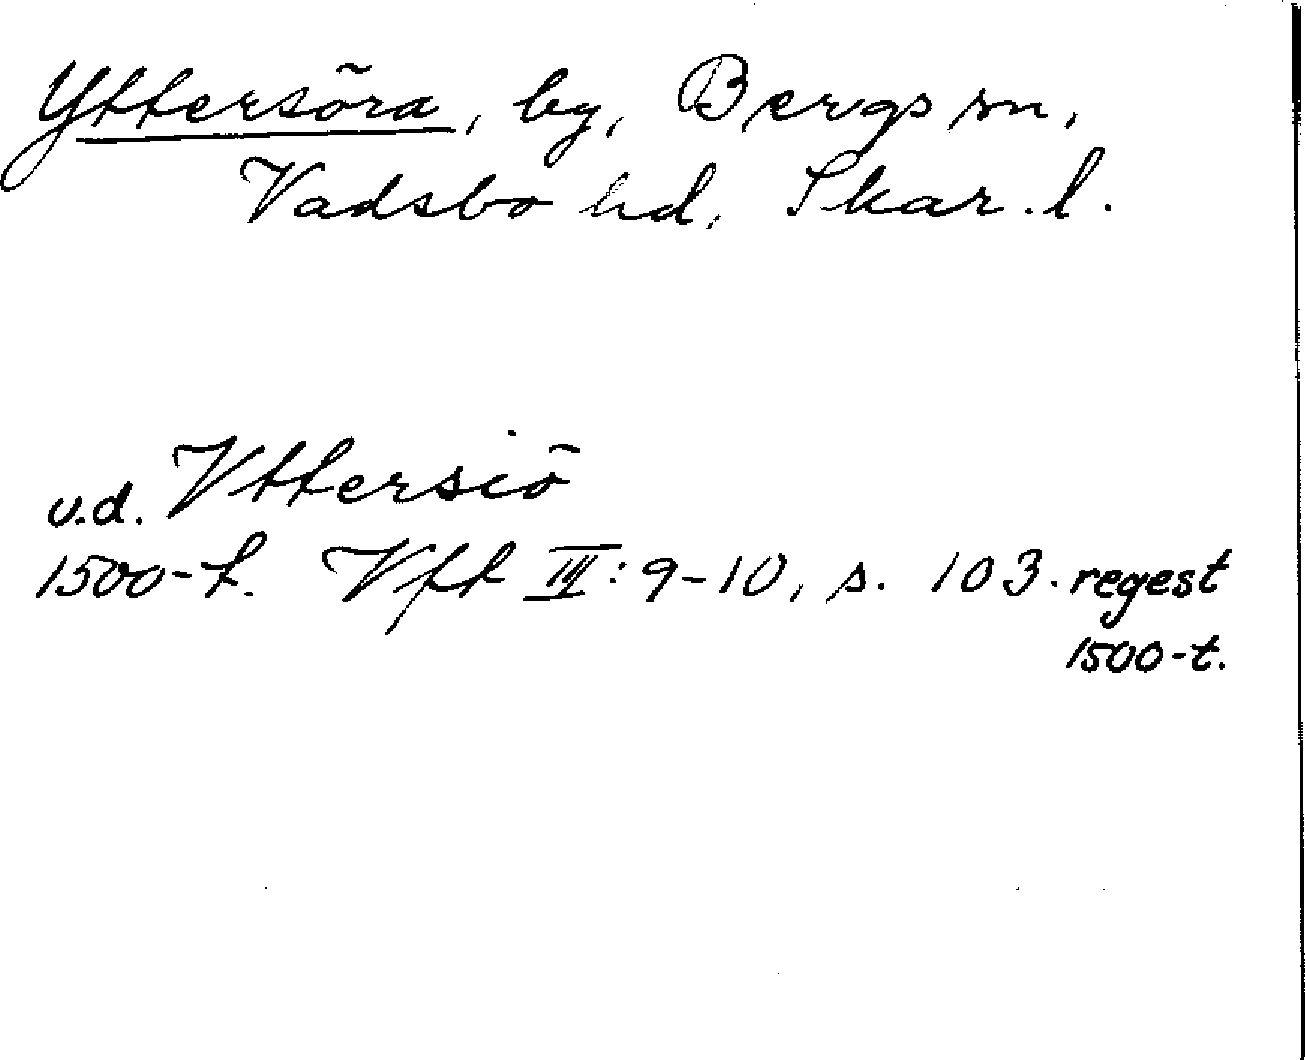 Yttersöra, by, Bergs sn,
Vadsbo hd, Skar. l.
u.d. Vttersiö
1500-t. Vft III: 9-10, s. 103. regest
1500-t.